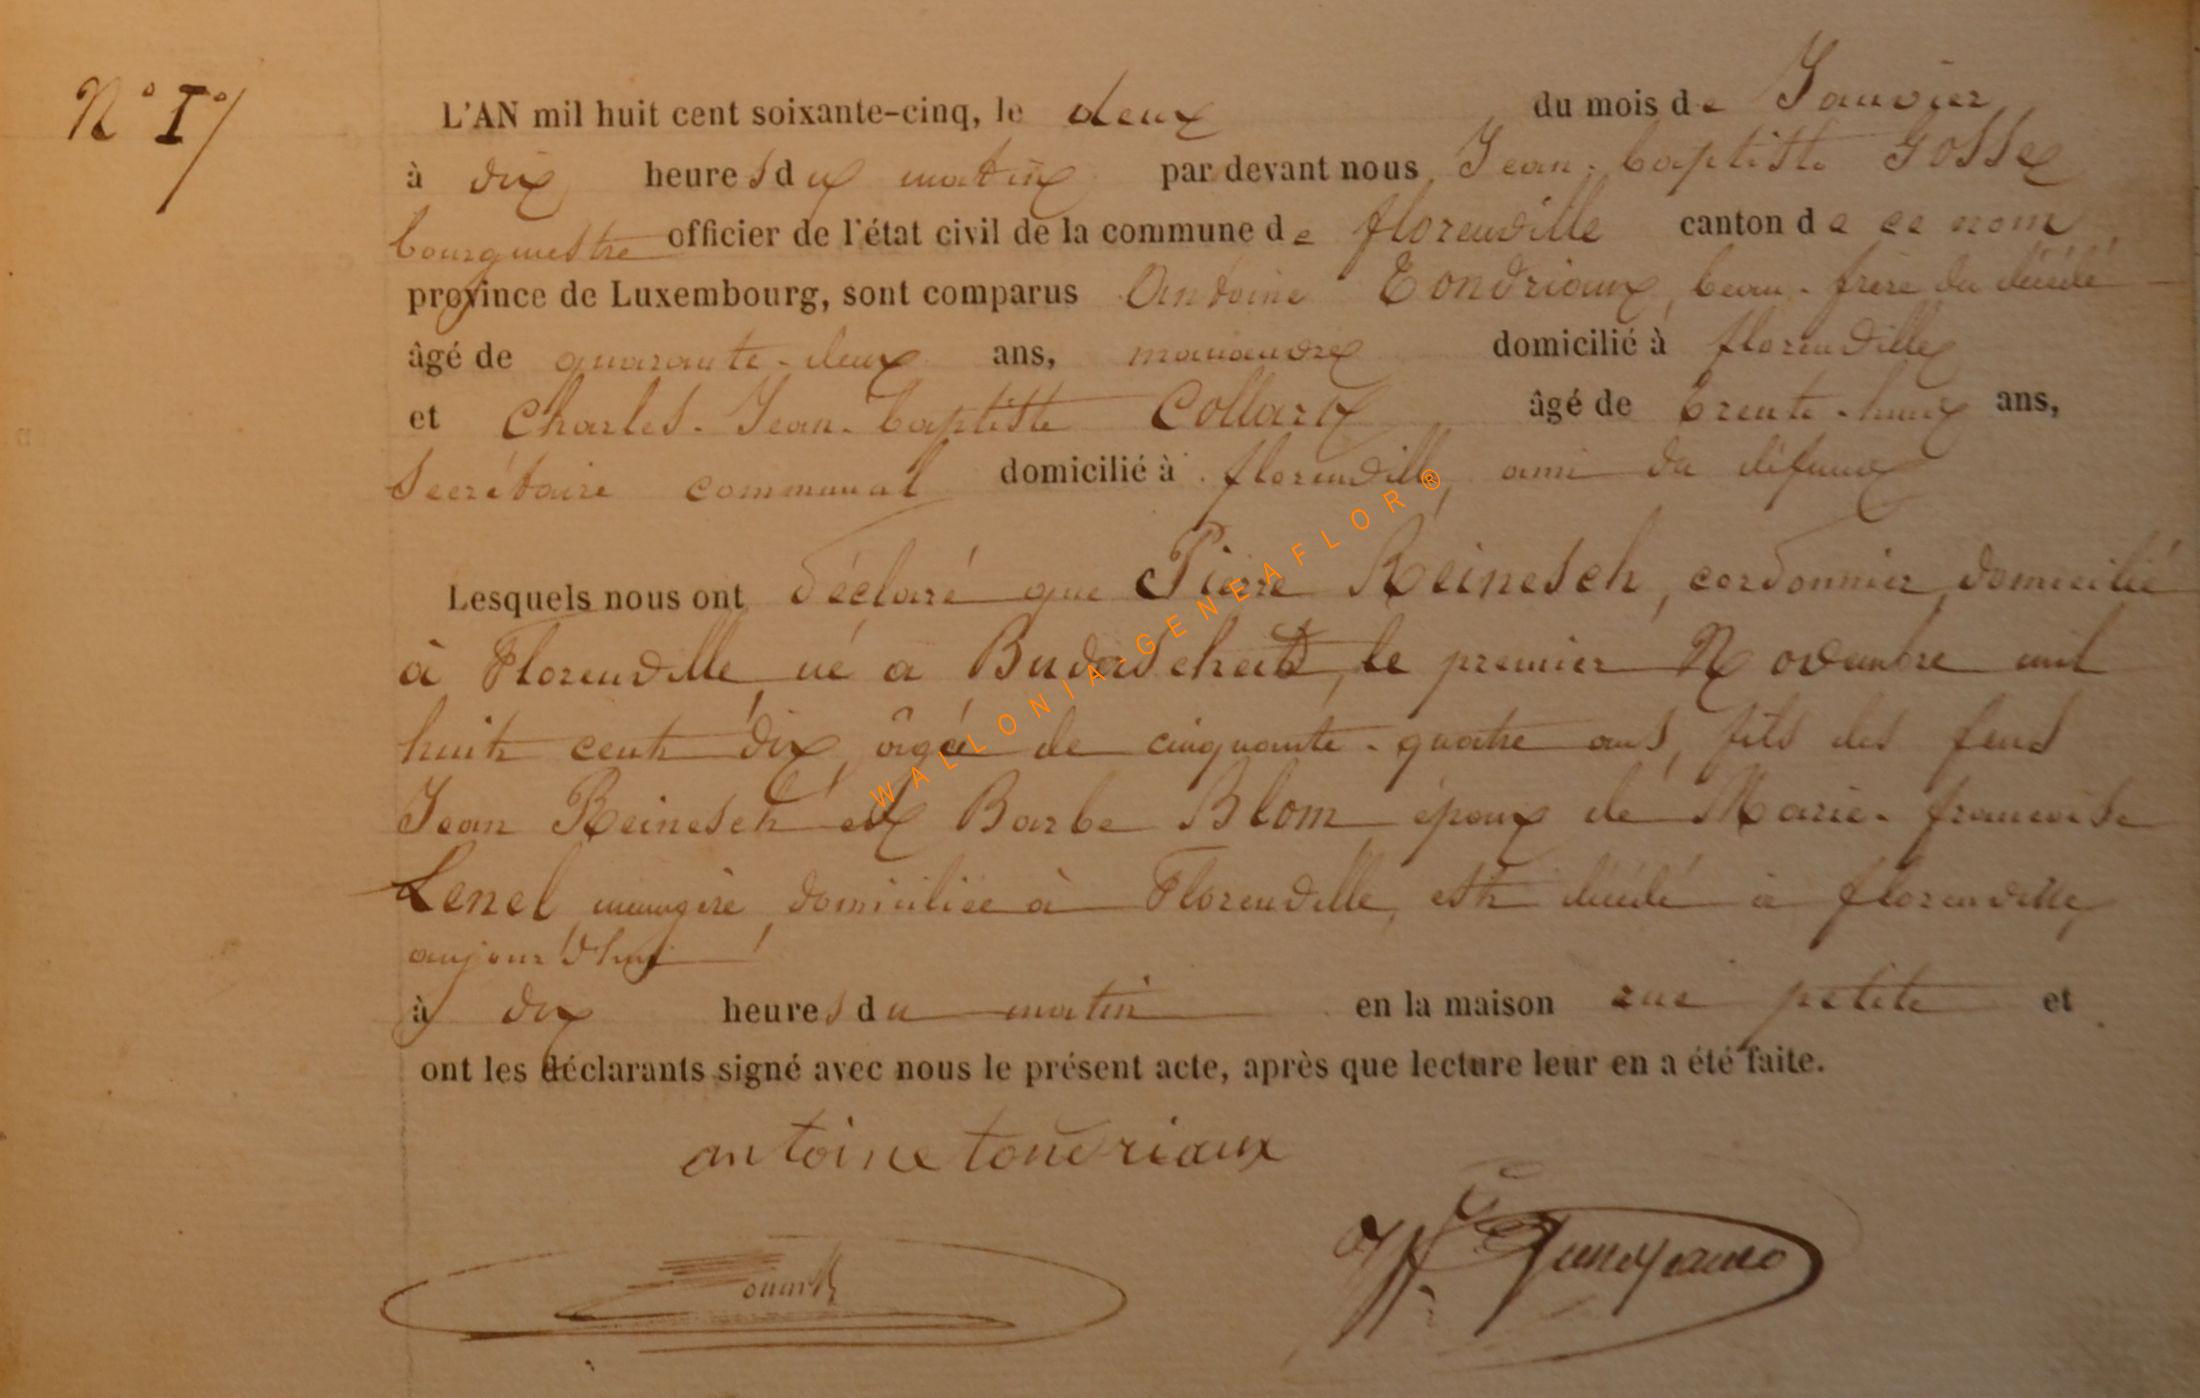 N° I°/
L'AN mil huit cent soixante-cinq, le deux du mois de Janvier
à dix heures du matin par devant nous Jean-baptiste Gosse
bourgmestre officier de l'état civil de la commune de florenville canton de ce nom
province de Luxembourg, sont comparus Antoine Tondriaux, beau-frère du décédé
âgé de quarante-deux ans, manoeuvre domicilié à florenville
et Charles-Jean-baptiste Collart âgé de trente-huit ans,
secrétaire communal domicilié à florenville, ami du défunt
Lesquels nous ont déclaré que Pierre Reinesch, cordonnier, domicilié
à Florenville, né à Buderscheid, le premier Novembre mil
huit cent dix, âgé de cinquante-quatre ans, fils des feus
Jean Reinesch et Barbe Blom époux de Marie-francoise
Lenel, menagère, domiciliée à Florenville, est décédé à florenville
aujourd'hui
à dix heures du matin en la maison rue petite et
ont les déclarants signé avec nous le présent acte, après que lecture leur en a été faite.
antoine tondriaux
WALLONIA-GENEAFLOR®